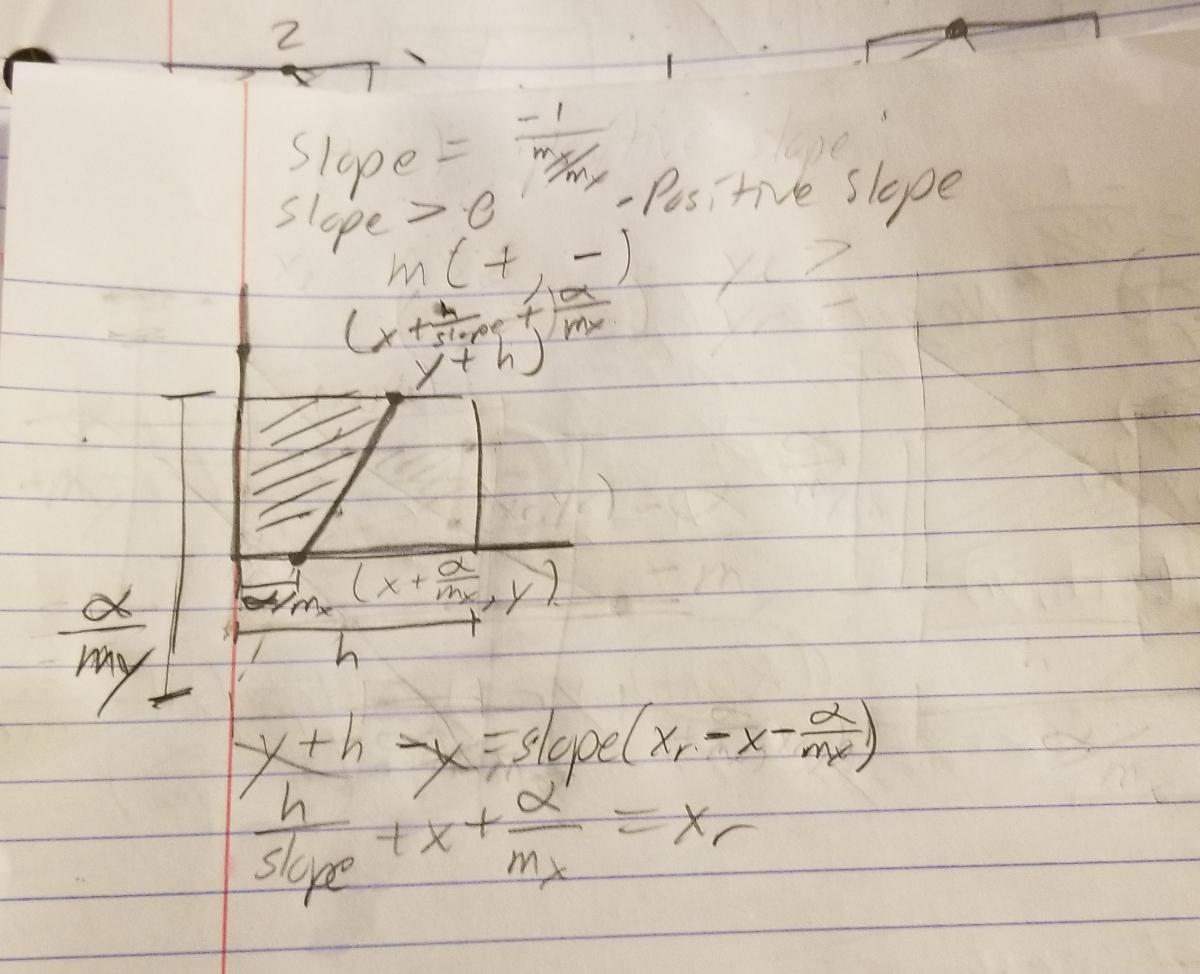 2
slope = -1 / my/mx
slope > 0 - Positive slope
m(+, -)
(x + h/slope + α/mx,
y + h)
α/mx (x + α/mx, y)
α/my
h
y + h - y = slope(xr - x - α/mx)
h/slope + x + α/mx = xr